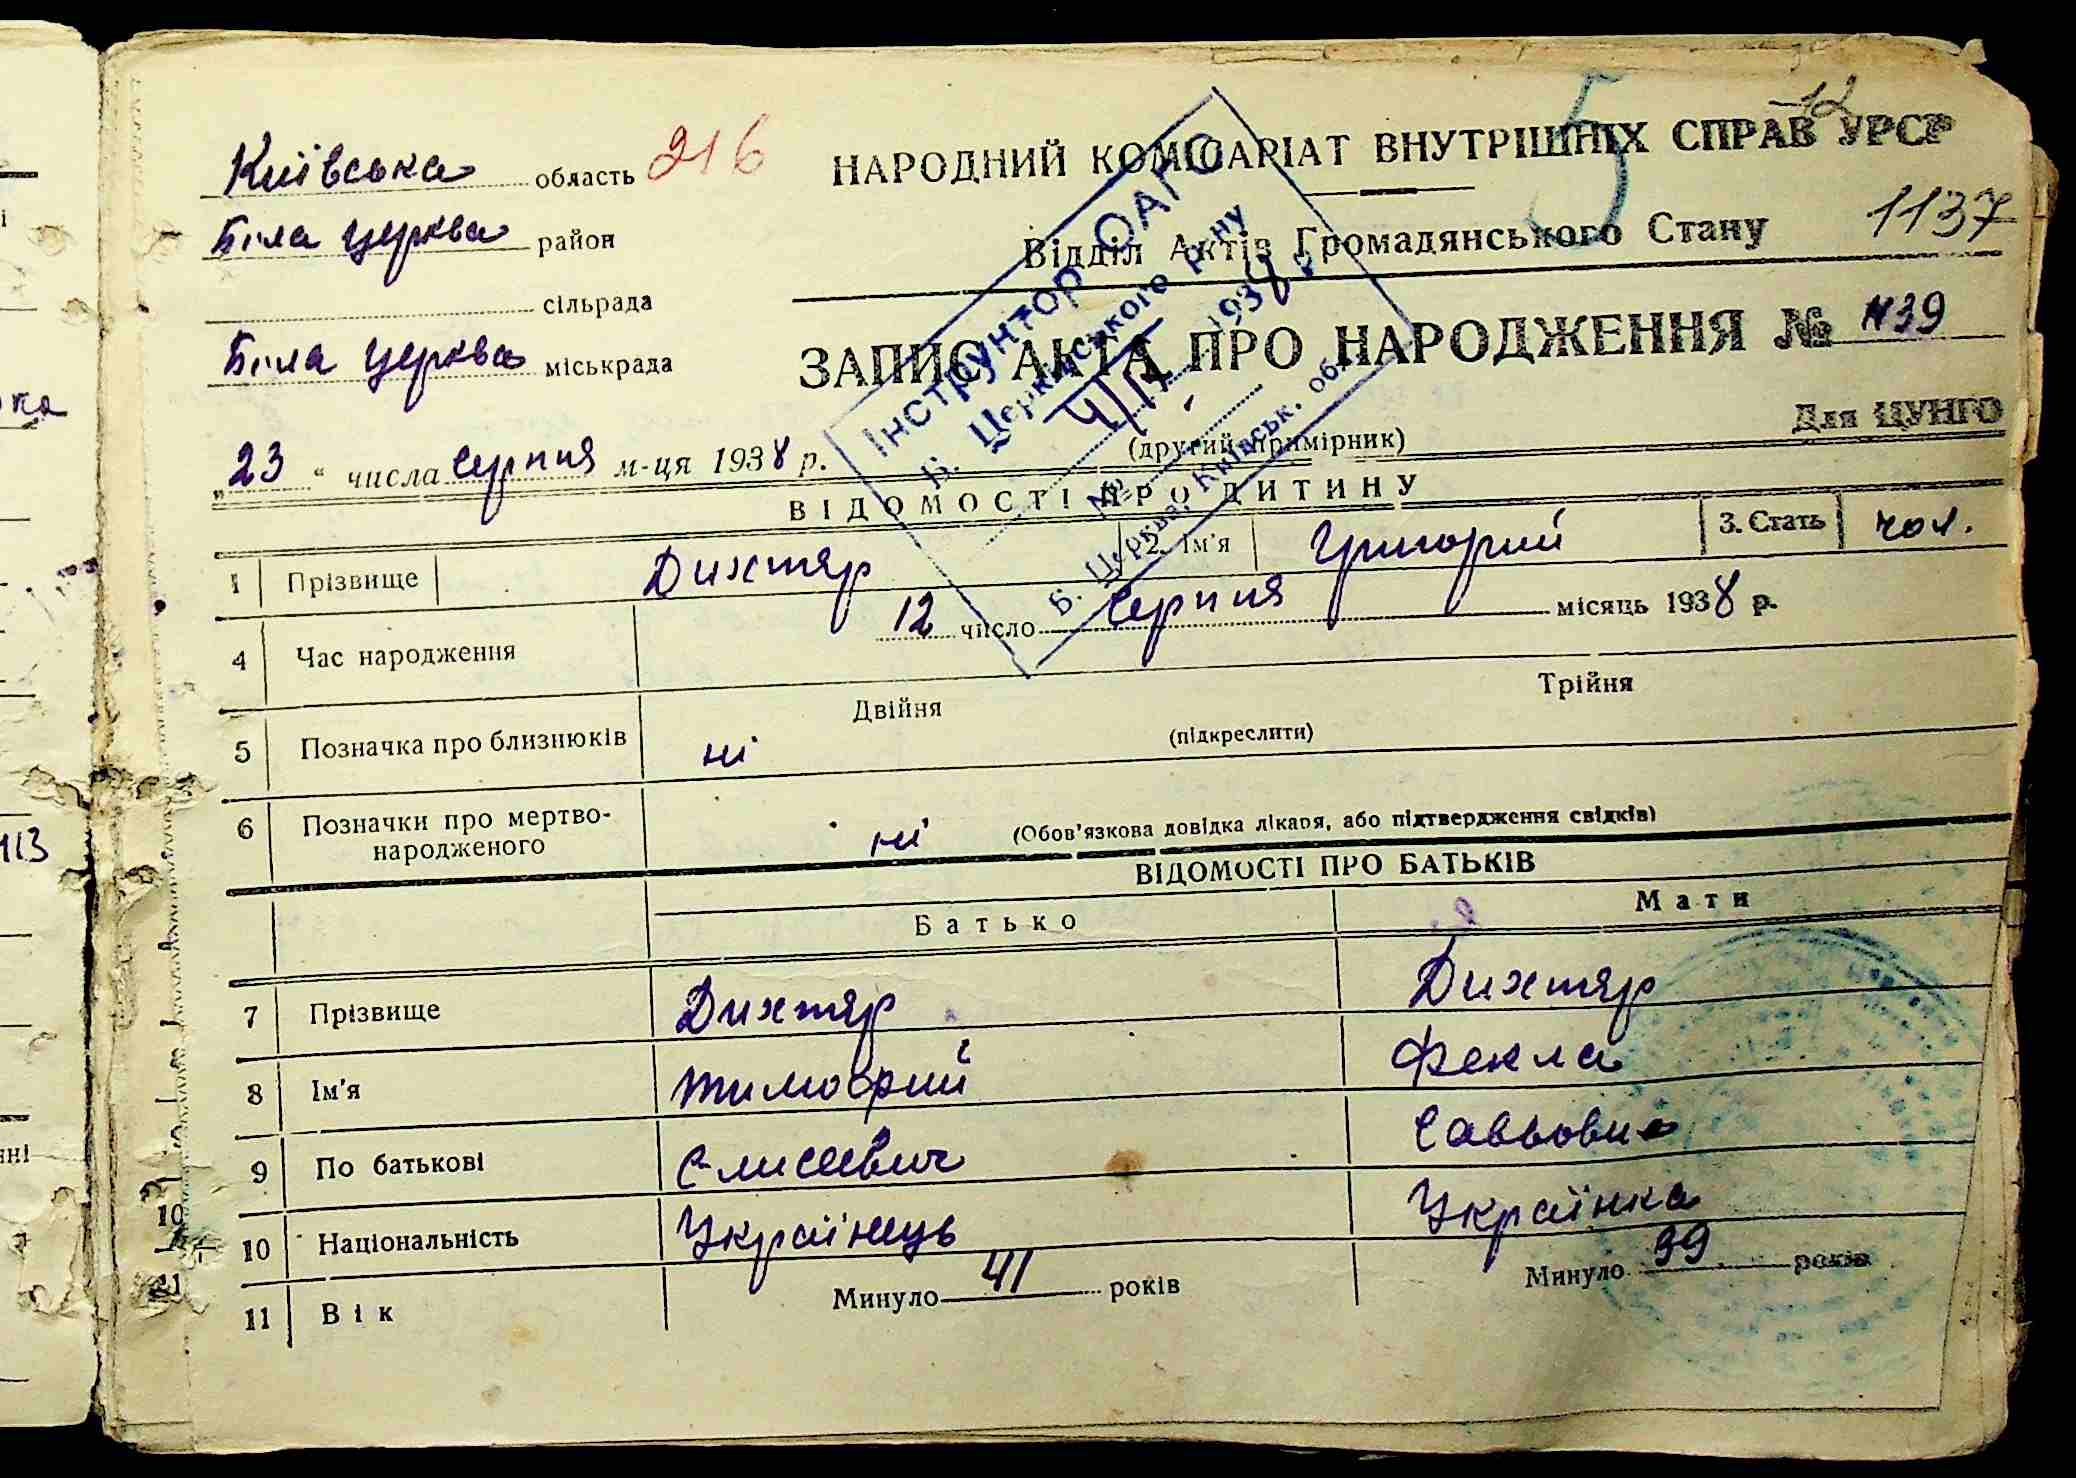 12
Київська область 216
НАРОДНИЙ КОМІСАРІАТ ВНУТРІШНІХ СПРАВ УРСР
5
Біла церква район
Відділ Актів Громадянського Стану 1137
сільрада
Біла церква міськрада
ЗАПИС АКТА ПРО НАРОДЖЕННЯ № 1139
Для ЦУНГО
"23" числа серпня м-ця 1938 р.
(другий примірник)
Інструнтор ОАГС
Б. Церківського р-ну
1938
№
Б. Церква, Київськ. об.
ВІДОМОСТІ ПРО ДИТИНУ
1 Прізвище Дихтяр 2. Ім'я Григорий 3. Стать чол.
4 Час народження 12 число серпня місяць 1938 р.
5 Позначка про близнюків ні Двійня (підкреслити) Трійня
6 Позначки про мертво-
народженого ні (Обов'язкова довідка лікаря, або підтвердження свідків)
ВІДОМОСТІ ПРО БАТЬКІВ
Батько Мати
7 Прізвище Дихтяр Дихтяр
8 Ім'я Фекла
9 По батькові Елисеевич Саввовна
10 Національність Українець Українка
11 Вік Минуло 41 років Минуло 39 років
ка
113
нні
10
11